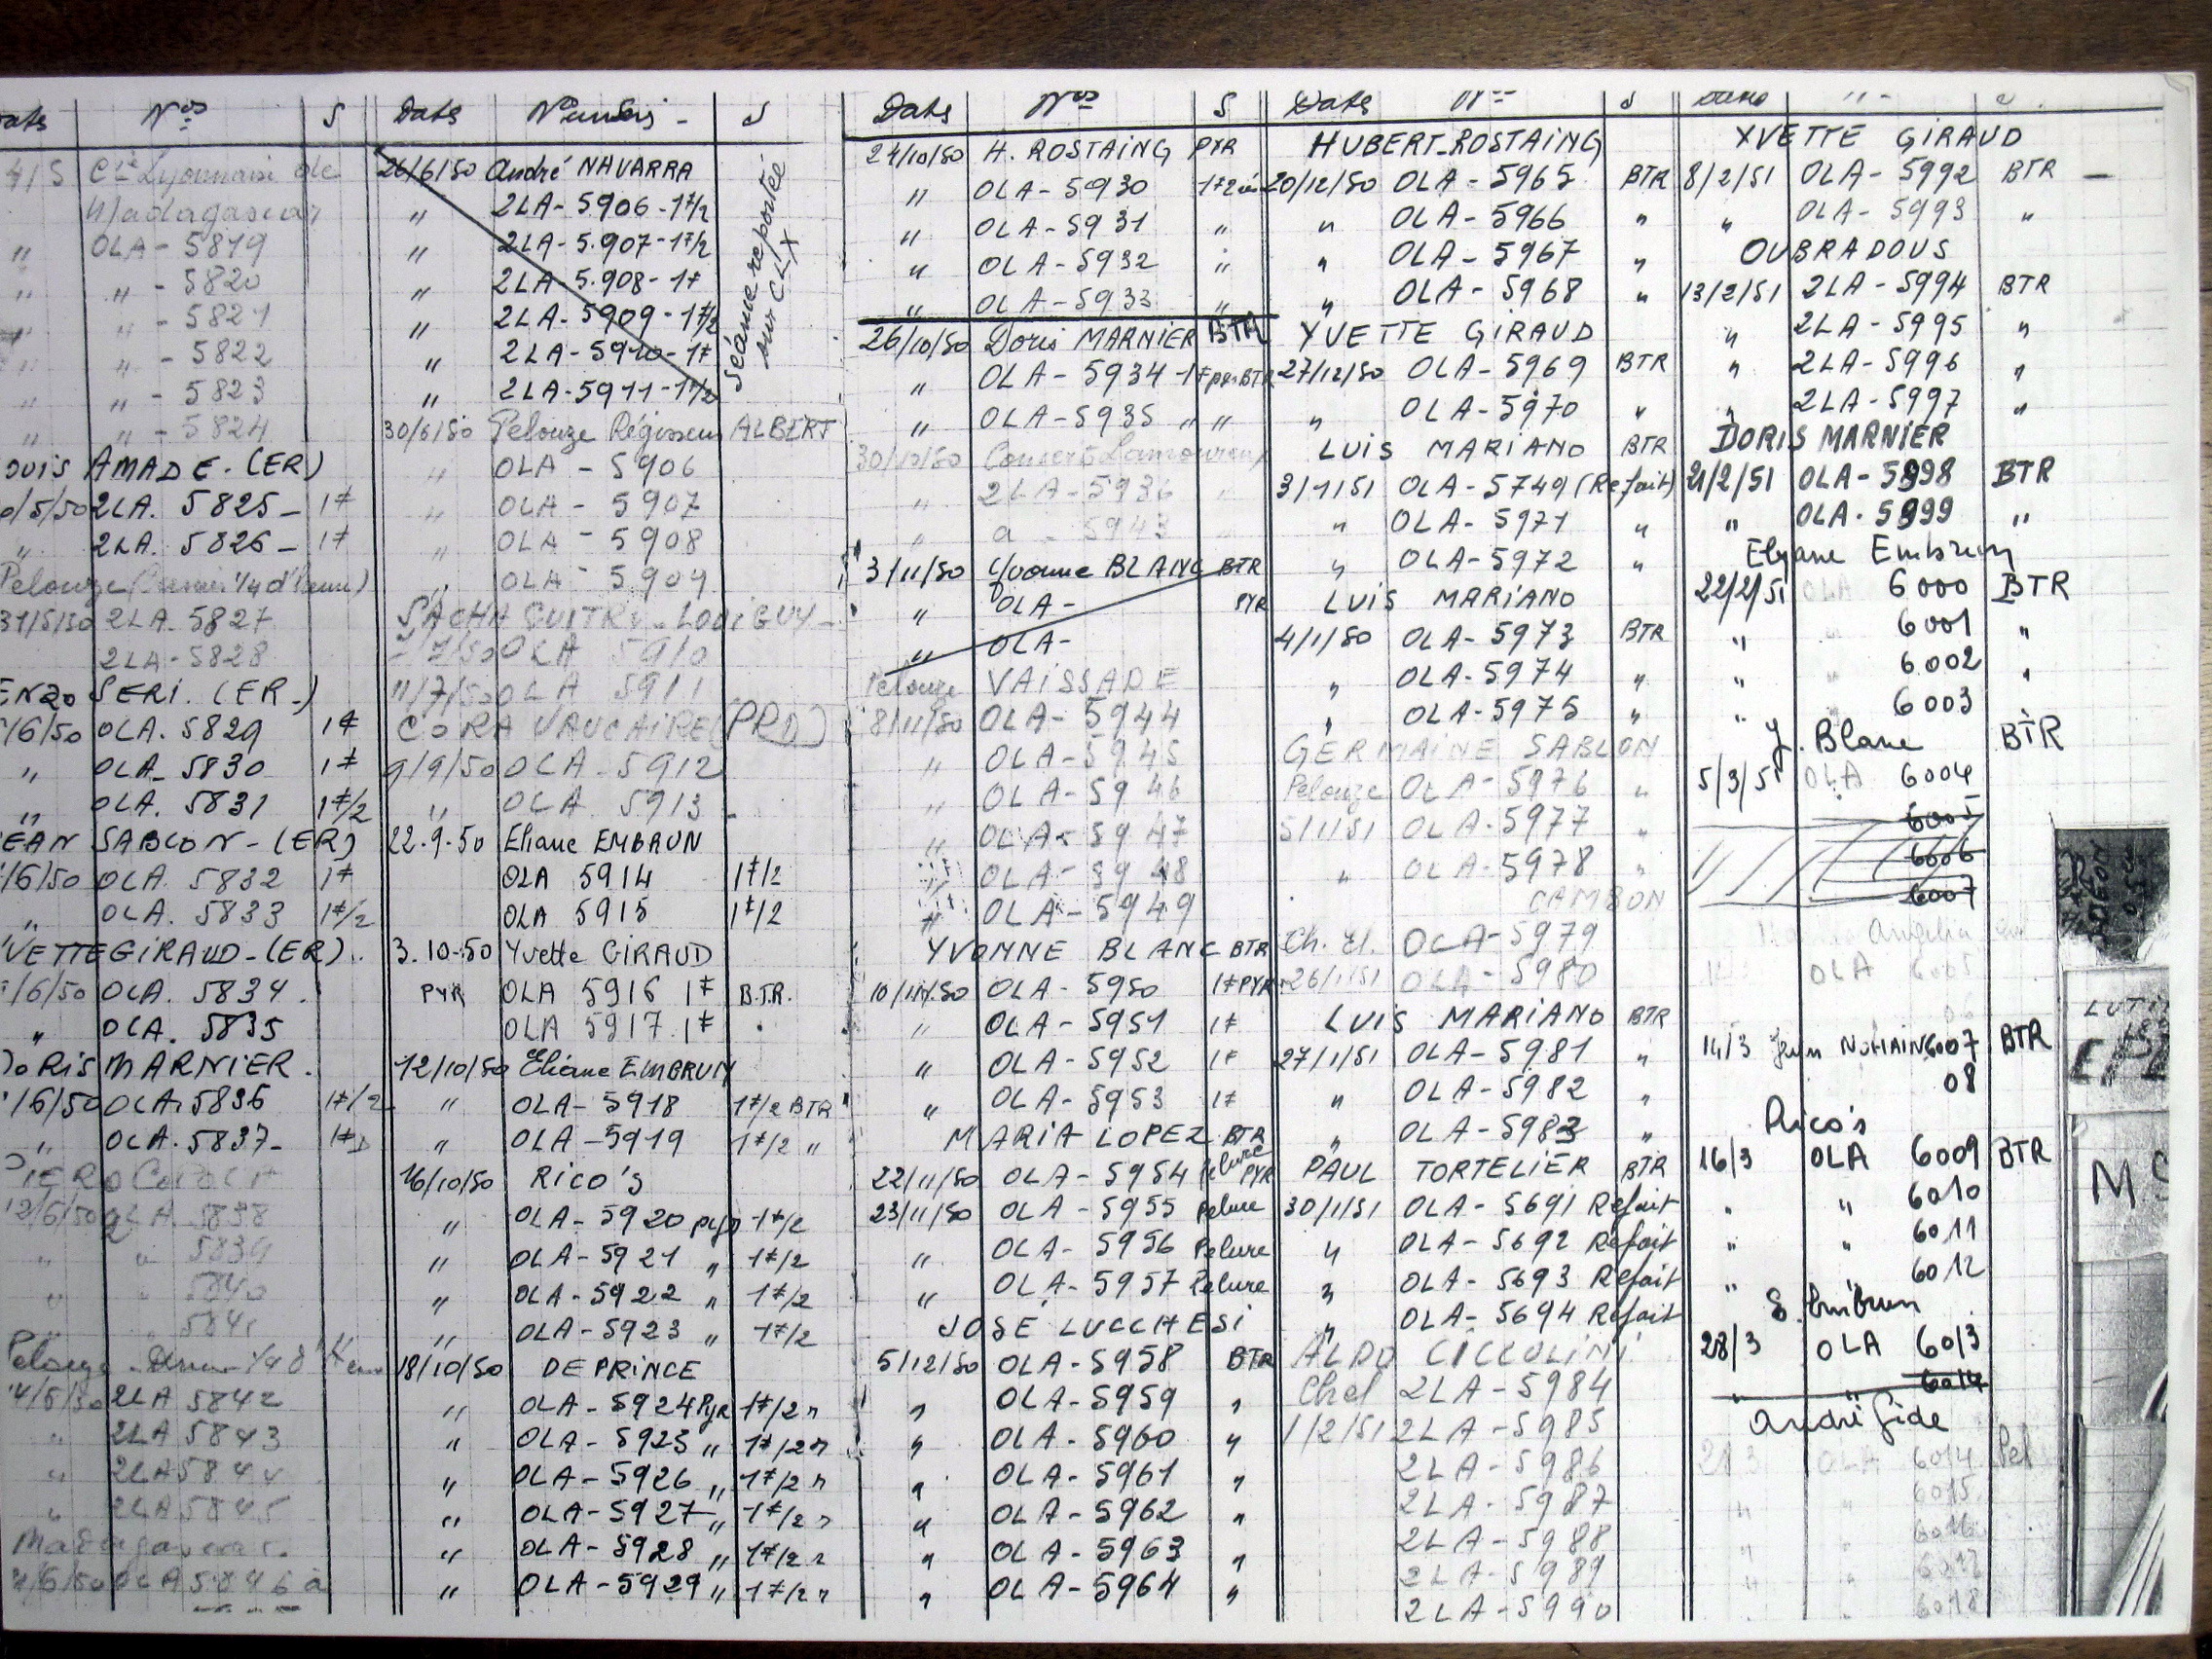 Nos S
4/5 Cie Lyonnaise
Madagascar
" OLA - 5819
" " - 5820
" " - 5821
" " - 5822
" " - 5823
" " - 5824
OUIS AMADE. (ER)
/5/50 2LA. 5825 - 1≠
" 2LA. 5826 - 1≠
Pelouze (Premier 1/4 d'heure)
31/5/50 2LA. 5827
2LA - 5828
ENZO SERI. (ER-)
/6/50 OLA. 5829 1≠
" OLA_ 5830 1≠
" OLA. 5831 1≠/2
EAN SABLON - (ER)
/6/50 OLA. 5832 1≠
" OLA. 5833 1≠/2
VETTE GIRAUD - (ER).
/6/50 OLA. 5834.
" OLA. 5835
DORIS MARNIER.
/6/50 OLA. 5836 1≠/2
" OLA. 5837-
PIERO
12/6/50 2LA. 5838
" " 5839
" " 5840
" " 5841
Pelouze
14/6/50 2LA 5842
" 2LA 5843
" 2LA 5844
" 2LA 5845
Madagascar.
/6/50 OLA 5846 à
Date Numéros - S
26/6/50 André NAVARRA
" 2LA - 5906 - 1≠/2
" 2LA - 5.907 - 1≠/2
" 2LA - 5.908 - 1≠
" 2LA - 5909 - 1≠/2
" 2LA - 5910 - 1≠
" 2LA - 5911 - 1≠/2
Séance reportée
sur CLX
30/6/50 Pelouze Régisseur ALBERT
" OLA - 5906
" OLA - 5907
" OLA - 5908
" OLA - 5909
SACHA GUITRY - LOUIGUY -
7/50 OLA 5910
11/7/50 OLA 5911
CORA VAUCAIRE (PRD)
9/9/50 OLA - 5912
" OLA 5913
22.9.50 Eliane EMBRUN
OLA 5914 1≠/2
OLA 5915 1≠/2
3.10.50 Yvette GIRAUD
PYR OLA 5916 1≠ B.T.R.
OLA 5917 1≠
12/10/50 Eliane EMBRUN
" OLA - 5918 1≠/2 BTR
" OLA - 5919 1≠/2 "
16/10/50 RICO'S
" OLA - 5920 pyr 1≠/2
" OLA - 5921 " 1≠/2
" OLA - 5922 " 1≠/2
" OLA - 5923 " 1≠/2
18/10/50 DEPRINCE
" OLA - 5924 Pyr 1≠/2 "
" OLA - 5925 " 1≠/2 "
" OLA - 5926 " 1≠/2 "
" OLA - 5927 " 1≠/2 "
" OLA - 5928 " 1≠/2 "
" OLA - 5929 " 1≠/2 "
Date Nos S
24/10/50 H. ROSTAING PYR
" OLA - 5930
" OLA - 5931 "
" OLA - 5932 "
" OLA - 5933 "
26/10/50 Doris MARNIER BTR
" OLA - 5934 - 1≠ pyr BTR
" OLA - 5935 " "
30/10/50 Concerts Lamoureux
" 2LA - 5936 "
" a - 5943 "
3/11/50 Yvonne BLANC BTR
" OLA - PYR
" OLA -
Pelouze VAISSADE
8/11/50 OLA - 5944
" OLA - 5945
" OLA - 5946
" OLA - 5947
" OLA - 5948
" OLA - 5949
YVONNE BLANC BTR
10/11/50 OLA - 5950 1≠ PYR
" OLA - 5951 1≠
" OLA - 5952 1≠
" OLA - 5953 1≠
MARIA LOPEZ BTR
22/11/50 OLA - 5954 Pelure PYR
23/11/50 OLA - 5955 Pelure
" OLA - 5956 Pelure
" OLA - 5957 Pelure
JOSÉ LUCCHESI
5/12/50 OLA - 5958 BTR
" OLA - 5959 "
" OLA - 5960 "
" OLA - 5961 "
" OLA - 5962 "
" OLA - 5963 "
" OLA - 5964 "
Date Nos S
HUBERT-ROSTAING
20/12/50 OLA - 5965 BTR
" OLA - 5966 "
" OLA - 5967 "
" OLA - 5968 "
YVETTE GIRAUD
27/12/50 OLA - 5969 BTR
" OLA - 5970 "
LUIS MARIANO BTR
3/1/51 OLA - 5749 (Refait)
" OLA - 5971 "
" OLA - 5972 "
LUIS MARIANO
4/1/50 OLA - 5973 BTR
" OLA - 5974 "
" OLA - 5975 "
GERMAINE SABLON
Pelouze OLA - 5976 "
5/1/51 OLA - 5977 "
" OLA - 5978 "
CAMBON
Ch. El. OLA - 5979
26/1/51 OLA - 5980
LUIS MARIANO BTR
27/1/51 OLA - 5981 "
" OLA - 5982 "
" OLA - 5983 "
PAUL TORTELIER BTR
30/1/51 OLA - 5691 Refait
" OLA - 5692 Refait
" OLA - 5693 Refait
" OLA - 5694 Refait
ALDO CICCOLINI
Chel 2LA - 5984
1/2/51 2LA - 5985
2LA - 5986
2LA - 5987
2LA - 5988
2LA - 5989
2LA - 5990
YVETTE GIRAUD
8/2/51 OLA - 5992 BTR
" OLA - 5993 "
OUBRADOUS
13/2/51 2LA - 5994 BTR
" 2LA - 5995 "
" 2LA - 5996 "
" 2LA - 5997 "
DORIS MARNIER
21/2/51 OLA - 5998 BTR
" OLA - 5999 "
Elyane Embrun
22/2/51 OLA 6000 BTR
" " 6001 "
" " 6002 "
" " 6003
Y. Blanc BTR
5/3/51 OLA 6004
6005
6006
6007
OLA 6005
06
14/3 Jean NOHAIN 6007 BTR
08
Rico's
16/3 OLA 6009 BTR
" " 6010
" " 6011
" " 6012
E. Embrun
28/3 OLA 6013
" " 6014
André Gide
283 OLA 6014 Pel
" " 6015
" " 6016
" " 6017
" " 6018